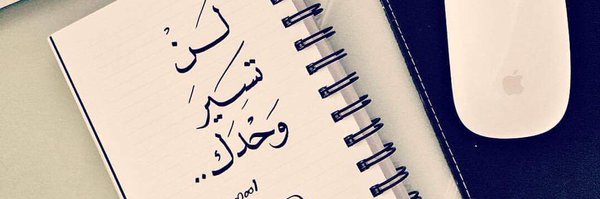 لَنْ
تسيرَ
وَحْدكَ..